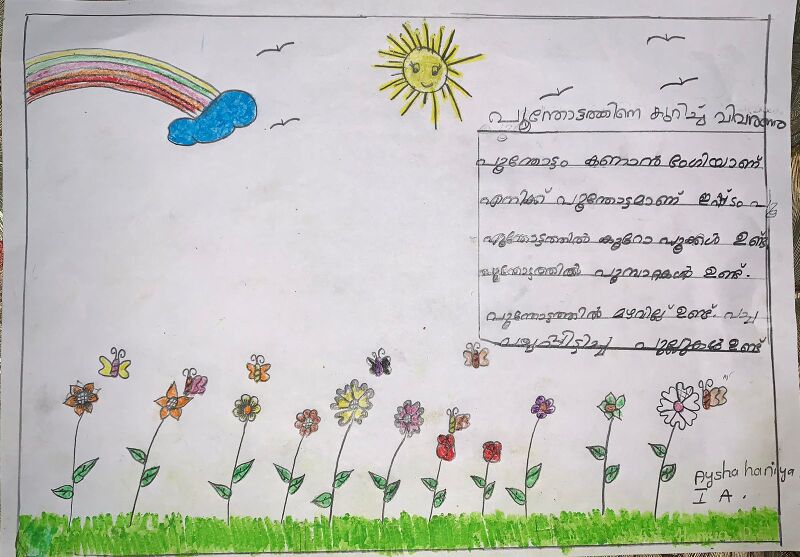 പൂന്തോട്ടത്തിനെ കുറിച്ച് വിവരണം
പൂന്തോട്ടം കണാൻ ഭംഗിയാണ്
എനിക്ക് പൂന്തോട്ടമാണ് ഇഷ്ടം
പൂന്തോട്ടത്തിൽ കുറേ പൂക്കൾ ഉണ്ട്
പൂന്തോട്ടത്തിൽ പൂമ്പാറ്റകൾ ഉണ്ട്.
പൂന്തോട്ടത്തിൽ മഴവില്ല് ഉണ്ട്. പച്ച
പുല്ലുകൾ ഉണ്ട്
Aysha haniya
I A.